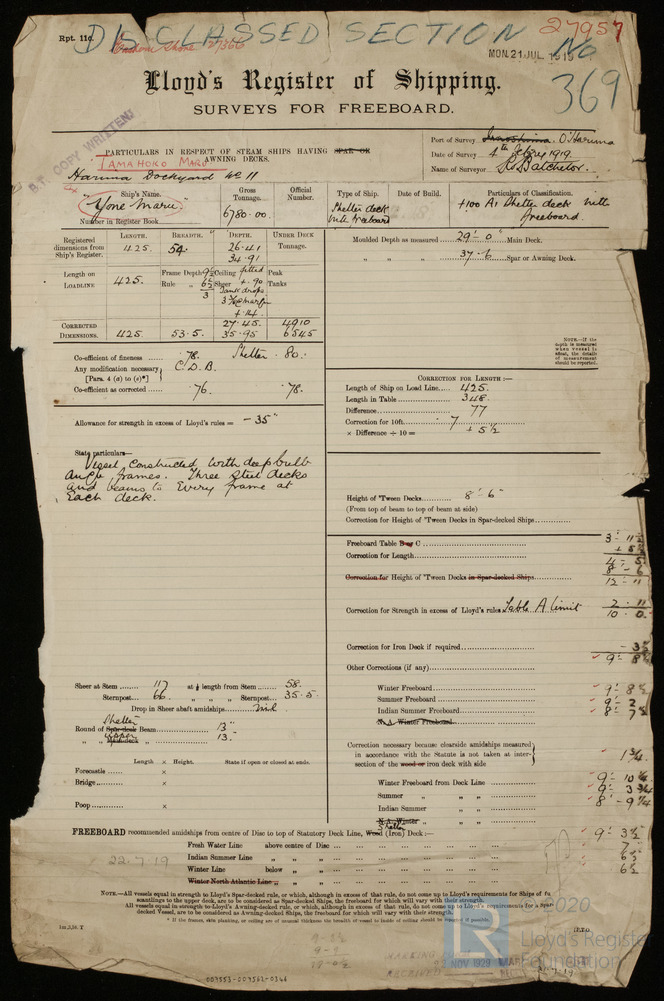 Rpt. 11c.
DISCLASSED SECTION
27957
No
369
MON. 21 JUL. 1919
Lloyd's Register of Shipping.
SURVEYS FOR FREEBOARD.
PARTICULARS IN RESPECT OF STEAM SHIPS HAVING SPAR OR
AWNING DECKS.
TAMAHOKO MARU
Harima Dockyard No 11
Port of Survey O'Harima
Date of Survey 4th July 1919.
Name of Surveyor Batchelor.
Ship's Name.
"Yone Maru"
Number in Register Book
Gross Tonnage.
6780.00.
Official Number.
Type of Ship.
Shelter deck
with freeboard
Date of Build.
Particulars of Classification.
+100 A1 Shelter deck with
freeboard.
Registered dimensions from Ship's Register.
LENGTH. BREADTH. DEPTH. UNDER DECK Tonnage.
425. 54. 26.41
34.91
Length on LOADLINE
425.
Frame Depth 9½ Ceiling fitted Peak
Rule " 6½ Sheer +.90 Tanks
3 Tank drops
+.14
CORRECTED DIMENSIONS.
425. 53.5. 27.45. 4910
35.95 6545
Moulded Depth as measured 29'-0" Main Deck.
" " " 37-6 Spar or Awning Deck.
NOTE.—If the depth is measured when vessel is afloat, the details of measurement should be reported.
Co-efficient of fineness .78. Shelter .80.
Any modification necessary C.D.B.
[Para. 4 (a) to (e)*]
Co-efficient as corrected .76. .78.
Allowance for strength in excess of Lloyd's rules = - 35"
State particulars—
Vessel constructed with deep bulb
angle frames. Three steel decks
and beams to every frame at
each deck.
CORRECTION FOR LENGTH:—
Length of Ship on Load Line 425.
Length in Table 348.
Difference 77
Correction for 10ft. .7
× Difference ÷ 10 = + 5½
Height of 'Tween Decks 8'-6"
(From top of beam to top of beam at side)
Correction for Height of 'Tween Decks in Spar-decked Ships
Freeboard Table B or C 3-11½
Correction for Length + 5½
4-5
Correction for Height of 'Tween Decks in Spar-decked Ships 8-6
12-11
Correction for Strength in excess of Lloyd's rules Table A limit 2-11
10-0
Correction for Iron Deck if required - 3½
9-8½
Other Corrections (if any)
Winter Freeboard 9-8½
Summer Freeboard 9-2
Indian Summer Freeboard 8-7½
N.A. Winter Freeboard
Correction necessary because clearside amidships measured
in accordance with the Statute is not taken at inter-
section of the wood or iron deck with side
1¾
Winter Freeboard from Deck Line 9-10¼
Summer " " " 9-3¾
Indian Summer " " 8-9¼
N.A. Winter " "
Sheer at Stem 117 at ⅛ length from Stem 58
Sternpost 66 " " Sternpost 35.5
Drop in Sheer abaft amidships nil
Round of Spar-deck Beam 13"
Shelter
Upper
" " 13"
Length × Height. State if open or closed at ends.
Forecastle ×
Bridge ×
Poop ×
Shelter
FREEBOARD recommended amidships from centre of Disc to top of Statutory Deck Line, Wood (Iron) Deck:— 9-3½
Fresh Water Line above centre of Disc 7
Indian Summer Line " " 6½
Winter Line below " " 6½
Winter North Atlantic Line " "
22-7-19
NOTE.—All vessels equal in strength to Lloyd's Spar-decked rule, or which, although in excess of that rule, do not come up to Lloyd's requirements for Ships of full
scantlings to the upper deck, are to be considered as Spar-decked Ships, the freeboard for which will vary with their strength.
All vessels equal in strength to Lloyd's Awning-decked rule, or which, although in excess of that rule, do not come up to Lloyd's requirements for a Spar-
decked Vessel, are to be considered as Awning-decked Ships, the freeboard for which will vary with their strength.
P.T.O.
© 2020
Lloyd's Register
Foundation
RECEIVED
009553-009562-0346